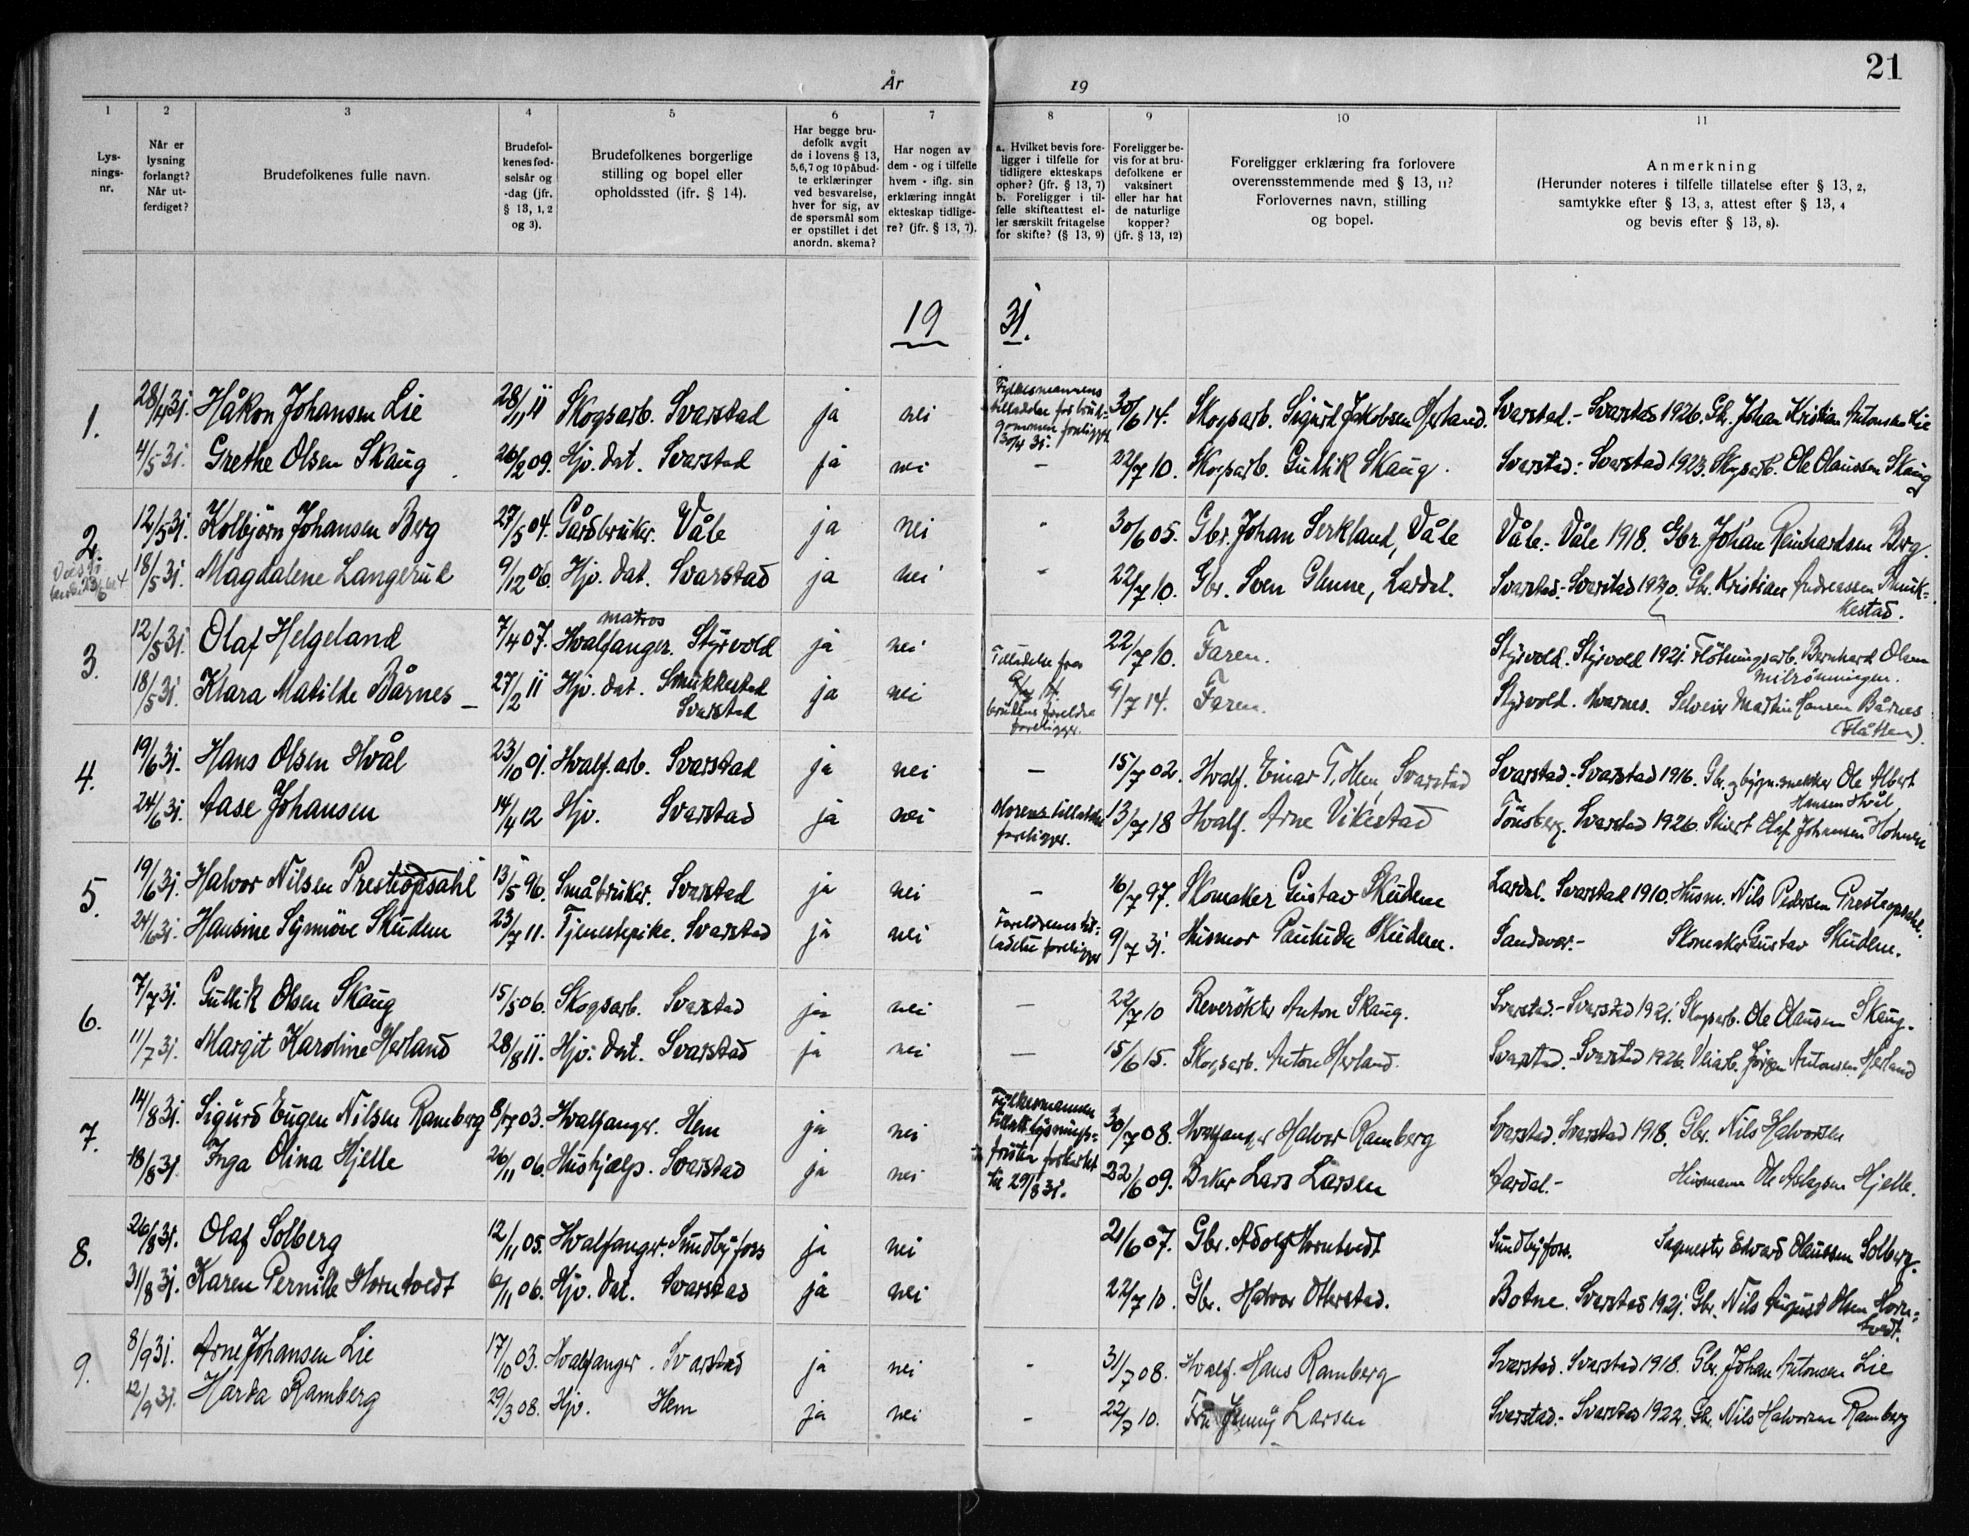 21
År 19
1 2 3 4 5 6 7 8 9 10 11
Lys-
nings-
nr.
Når er
lysning
forlangt?
Når ut-
ferdiget?
Brudefolkenes fulle navn.
Brudefol-
kenes fød-
selsår og
-dag (jfr.
§ 13, 1, 2
og 3).
Brudefolkenes borgerlige
stilling og bopel eller
opholdssted (ifr. § 14).
Har begge bru-
defolk avgit
de i lovens § 13,
5,6,7 og 10 påbud-
te erklæringer
ved besvarelse,
hver for sig, av
de spørsmål som
er opstillet i det
anordn. skema?
Har nogen av
dem - og i tilfelle
hvem - iflg. sin
erklæring inngåt
ekteskap tidlige-
re? (jfr. § 13, 7).
a. Hvilket bevis fore-
ligger i tilfelle for
tidligere ekteskaps
ophør? (jfr. § 13, 7)
b. Foreligger i til-
felle skifteattest el-
ler særskilt fritagelse
for skifte? (§ 13, 9)
Foreligger be-
vis for at bru-
defolkene er
vaksinert
eller har hat
de naturlige
kopper?
(jfr. § 13, 12)
Foreligger erklæring fra forlovere
overensstemmende med § 13, 11?
Forlovernes navn, stilling
og bopel.
Anmerkning
(Herunder noteres i tilfelle tillatelse efter § 13, 2,
samtykke efter § 13, 3, attest efter § 13, 4
og bevis efter § 13, 8).
19 31.
1. 28/4 31. Håkon Johansen Lie 28/11 11 Skogsarb. Svarstad ja nei Fylkesmannens tilladelse for brud-gommen foreligger 30/4 31. 30/6 14. Skogsarb. Sigurd Jakobsen Herland. Svarstad. - Svarstad 1926. Gbr. Johan Kristian Antonsen Lie
4/5 31. Grethe Olsen Skaug 26/2 09. Hjv. dat. Svarstad ja nei — 22/7 10. Skogsarb. Gullik Skaug. Svarstad: Svarstad 1923. Skogsarb. Ole Olaussen Skaug
2. 12/5 31. Kolbjörn Johansen Berg 27/5 04. Gårdbruker. Våle ja nei - 30/6 05. Gbr. Johan Serkland, Våle Våle. - Våle 1918. Gbr. Johan Reinhardsen Berg.
18/5 31. Magdalene Langerud 9/12 06. Hjv. dat. Svarstad ja nei - 22/7 10. Gbr. Sven Glenne, Lardal. Svarstad. - Svarstad 1920. Gbr. Kristian Andreassen
3. 12/5 31. Olaf Helgeland 7/4 07. matros Hvalfanger. Styrvold ja nei 22/7 10. Faren. Styrvold. Styrvold 1921. Flötningsarb. Bernhard Olsen
18/5 31. Klara Matilde Bårnes 27/2 11 Hjv. dat. Smukkestad Svarstad ja nei Tilladelse fra brudens foreldre foreligger. 9/7 14. Faren. Styrvold. Hvarnes. Selveier Martin Hansen Bårnes (Flåtten).
4. 19/6 31. Hans Olsen Hvål 23/10 01. Hvalf.arb. Svarstad ja nei — 15/7 02. Hvalf. Einar T. Hem, Svarstad Svarstad. - Svarstad 1916. Gbr. og bygn.snekker Ole Albert Hansen Hvål
24/6 31. Aase Johansen 14/4 12 Hjv. Svarstad ja nei Morens tilladelse foreligger. 13/7 18 Hvalf. Arne Vikestad Tönsberg. Svarstad 1926. Olaf Johansen
5. 19/6 31. Halvor Nilsen Presteopsahl 13/5 96. Småbruker. Svarstad ja nei — 16/7 97. Skomaker Gustav Skudem Lardal. Svarstad 1910. Husm. Nils Pedersen Presteopsahl.
24/6 31. Hansine Synnöve Skudem 23/7 11. Tjenestepike. Svarstad ja nei Foreldrenes til-ladelse foreligger 9/7 31. Husmor Paulude Skudem. Sandsvær. - Skomaker Gustav Skudem.
6. 7/7 31. Gullik Olsen Skaug 15/5 06. Skogsarb. Svarstad ja nei — 22/7 10 Reverökter Anton Skaug. Svarstad. - Svarstad 1921. Skogsarb. Ole Olaussen Skaug.
11/7 31. Margit Karoline Herland 28/8 11. Hjv. dat. Svarstad ja nei — 15/6 15. Skogsarb. Anton Herland. Svarstad. - Svarstad 1926. Veiarb. Jörgen Antonsen Herland
7. 14/8 31. Sigurd Eugen Nilsen Ramberg 8/7 03. Hvalfanger. Hem ja nei Fylkesmannen lysnings-fristen forkortet til 29/8 31. 30/7 08. Hvalfanger Halvor Ramberg Svarstad. Svarstad 1918. Gbr. Nils Halvorsen
18/8 31. Inga Olina Hjelle 26/11 06. Hushjælp. Svarstad ja nei 22/6 09. Baker Lars Larsen Aardal. - Husmann Ole Hjelle.
8. 26/8 31. Olaf Solberg 12/11 05. Hvalfanger. Sundbyfoss ja nei 21/6 07. Gbr. Adolf Horntvedt Sundbyfoss. Sagmester Edvard Olaussen Solberg.
31/8 31. Karen Pernille Horntvedt 6/11 06. Hjv. dat. Svarstad ja nei 22/7 10. Gbr. Halvor Otterstad. Botne. Svarstad 1921. Gbr. Nils August Olsen Horn-tvedt.
9. 8/9 31. Arne Johansen Lie 17/10 03. Hvalfanger. Svarstad ja nei - 31/7 08. Hvalf. Hans Ramberg Svarstad. Svarstad 1918. Gbr. Johan Antonsen Lie
12/9 31. Harda Ramberg 29/3 08. Hjv. Hem ja nei - 22/7 10. Fru Jenny Larsen Svarstad. - Svarstad 1922. Gbr. Nils Halvorsen Ramberg